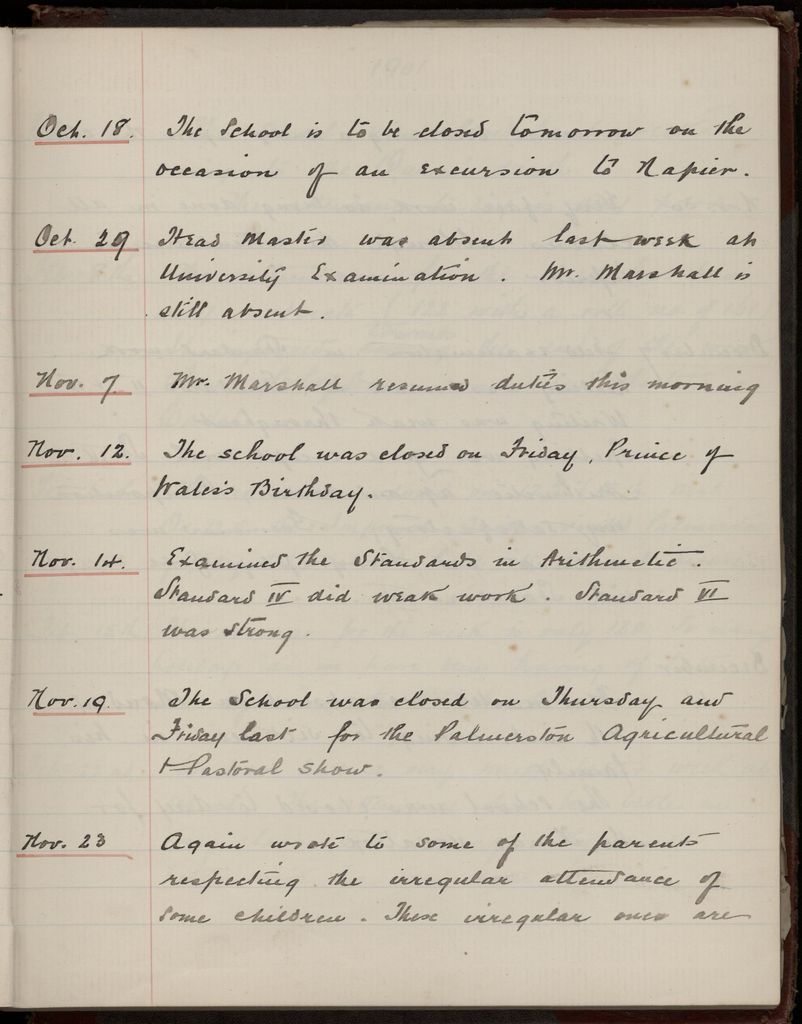 1901
Oct. 18. The School is to be closed tomorrow on the
occasion of an excursion to Napier.
Oct. 29 Head Master was absent last week at
University Examination. Mr. Marshall is
still absent.
Nov. 7. Mr. Marshall resumed duties this morning
Nov. 12. The school was closed on Friday, Prince of
Wales's Birthday.
Nov. 14. Examined the Standards in Arithmetic.
Standard IV did weak work. Standard VI
was strong.
Nov. 19. The School was closed on Thursday and
Friday last for the Palmerston Agricultural
& Pastoral Show.
Nov. 23 Again wrote to some of the parents
respecting the irregular attendance of
some children. These irregular ones are